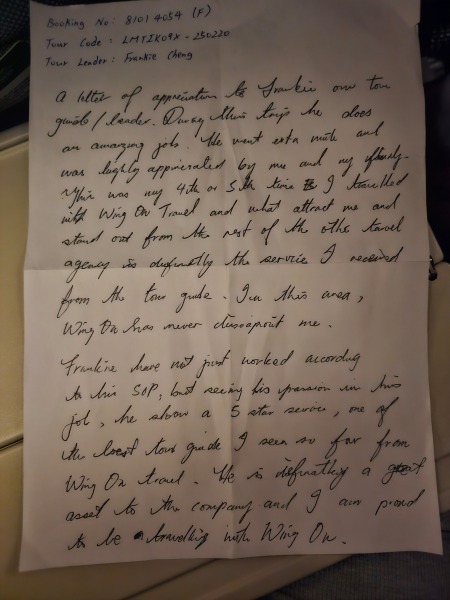 Booking No: 81014054 (F)
Tour Code: LMTIK09X-250220
Tour Leader: Frankie Cheng
A letter of appreciation to Frankie our tour
guide/leader. During this trips he does
an amazing job. He went extra mile and
was highly appreciated by me and my family.
This was my 4th or 5th time I travelled
with Wing On Travel and what attract me and
stand out from the rest of the other travel
agency is definatly the service I received
from the tour guide. In this area,
Wing On has never dissapoint me.
Frankie have not just worked according
to his SOP, but seeing his passion in his
job, he show a 5 star service, one of
the best tour guide I seen so far from
Wing On travel. He is definatly a great
asset to the company and I am proud
to be travelling with Wing On.